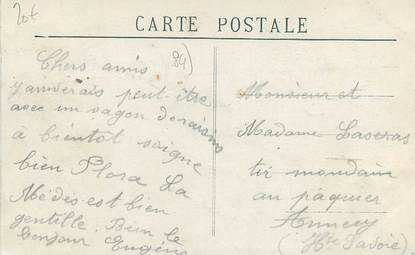 20f
CARTE POSTALE
84)
Chers amis
j'arriverais peut être
avec un wagon de raisins
a bientot soigne
bien Flora La
Médes est bien
gentille. Bien le
bonjour Eugène
Monsieur et
Madame Laseras
tir mondain
au pâquier
Annecy
(Hte Savoie)